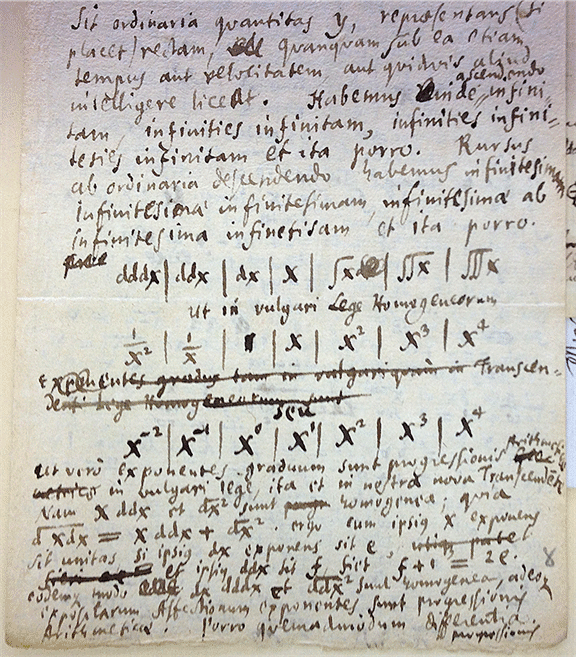 Sit ordinaria quantitas y, repraesentans (si
placet) rectam, quanquam sub ea etiam
tempus aut velocitatem, aut quidvis aliud
intelligere liceat. Habemus ascendendo infini-
tam, infinities infinitam, infinities infini-
ties infinitam et ita porro. Rursus
ab ordinaria descendendo habemus infinitesimam
infinitesima infinitesimam, infinitesima ab
infinitesima et ita porro.
dddx | ddx | dx | x | ∫x | ∫∫x | ∫∫∫x
ut in vulgari Lege Homogeneorum
1/x² | 1/x | 1 | x | x² | x³ | x⁴
Exponentes gradus tam in vulgari quam in Transcen-
denti Lege Homogeneorum sunt
seu
x⁻² | x⁻¹ | x⁰ | x¹ | x² | x³ | x⁴
ut vero exponentes graduum sunt progressionis Arithmeticae
in vulgari lege, ita et in nostra nova Transcendente
Nam x ddx et dx² sunt homogenea, quia
d xdx = x ddx + dx². ergo cum ipsius x exponens
sit unitas, si ipsius dx exponens sit e,
et ipsius ddx sit f, fiet f + 1 = 2e.
eodem modo dx dddx et ddx² sunt homogenea, adeoque
Affectionum exponentes sunt progressionis
Arithmeticae. Porro quemadmodum differentia
progressionis
8